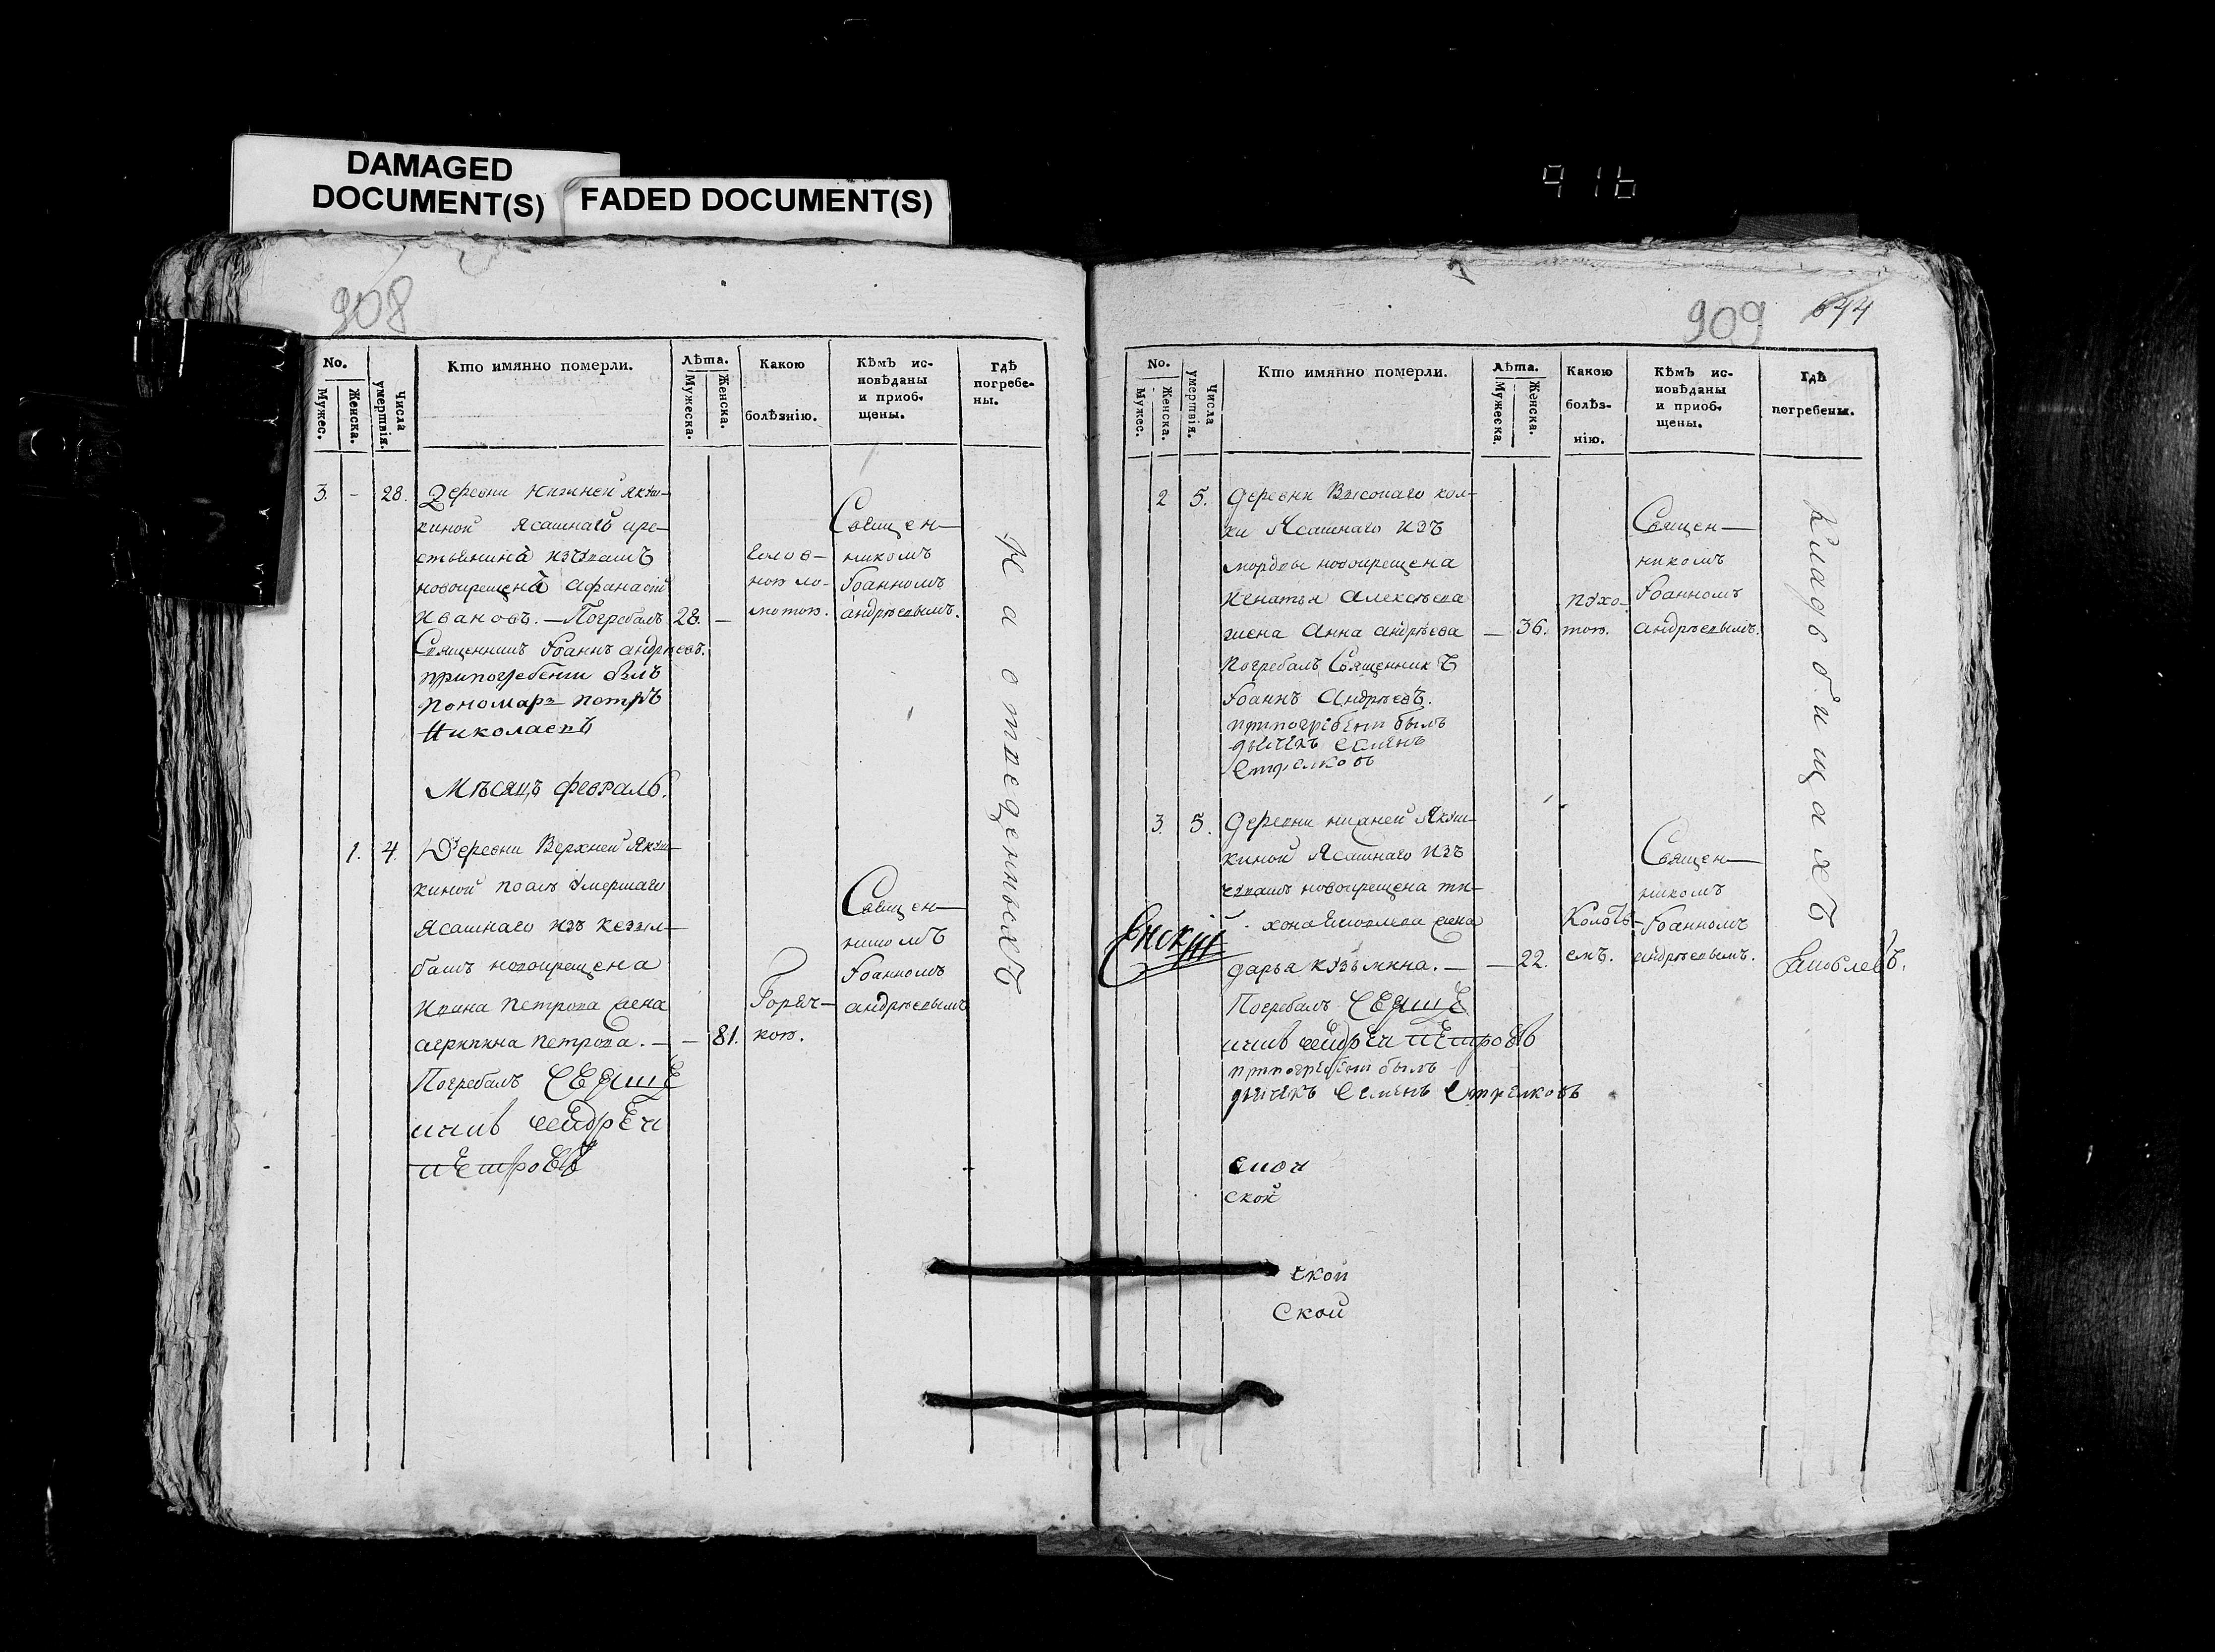 DAMAGED
DOCUMENT(S)
FADED DOCUMENT(S)
916
908
No.
Мужес.
Женска.
Числа умертвія.
Кто имянно померли.
Лѣта.
Мужеска.
Женска.
Какою
болѣзнію.
Кѣмъ ис-
повѣданы
и приоб-
щены.
Гдѣ
погребе-
ны.
3. - 28.
Деревни Нижней Якуш-
киной Ясашнаго кре-
стьянина изъ чувашъ
новокрещена Афанасій
Ивановъ. — Погребалъ 28. —
Священникъ Іоаннъ Андрѣевъ.
при погребеніи былъ
пономарь Петръ
Николаевъ
голов-
ною ло-
мотою.
Священ-
никомъ
Іоанномъ
Андрѣевымъ.
Мѣсяцъ февраль.
1. 4.
Деревни Верхней Якуш-
киной послѣ умершаго
Ясашнаго изъ кезыл-
башъ новокрещена
Ивана Петрова жена
Агрипина Петрова. — — 81.
Погребалъ Свяще
никъ Андрей
Петровъ
Горяч-
кою.
Священ-
никомъ
Іоанномъ
Андрѣевымъ
На отведенныхъ
909
644
No.
Мужес.
Женска.
Числа умертвія.
Кто имянно померли.
Лѣта.
Мужеска.
Женска.
Какою
болѣз-
нію.
Кѣмъ ис-
повѣданы
и приоб-
щены.
Гдѣ
погребены.
2 5.
Деревни Высокаго кол-
ки Ясашнаго изъ
мордвы новокрещена
Игнатья Алексѣева
жена Анна Андрѣева — 36.
Погребалъ Священникъ
Іоаннъ Андрѣевъ.
при погрібени былъ
дьячекъ Семенъ
Стрелковъ
пухо-
тою.
Священ-
никомъ
Іоанномъ
Андрѣевымъ.
3. 5.
Деревни нижней Якуш-
киной Ясашнаго изъ
чувашъ новокрещена ти-
хона Яковлева жена
Дарья Кузьмина. — — 22.
Погребалъ Свяще
никъ Андрей Петровъ
при погребени былъ
дьячекъ Семенъ Стрелковъ
Колоть-
емъ.
Священ-
никомъ
Іоанномъ
Андрѣевымъ.
Кладбищахъ
Яковлевъ.
Енскій
скои
ской
ской
Ской